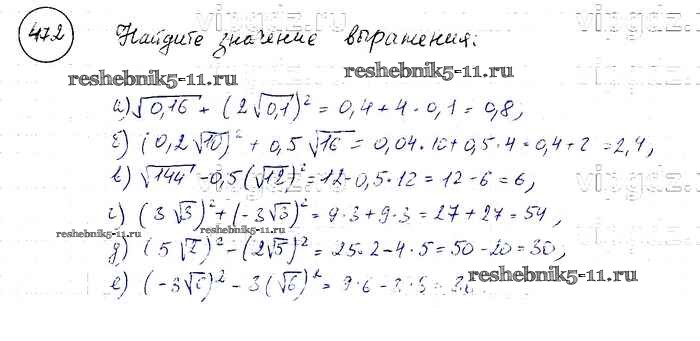 vipgdz.ru
472 Найдите значение выражения:
reshebnik5-11.ru reshebnik5-11.ru
а) √0,16 + (2√0,1)² = 0,4 + 4 · 0,1 = 0,8,
б) (0,2√10)² + 0,5√16 = 0,04 · 10 + 0,5 · 4 = 0,4 + 2 = 2,4,
в) √144 - 0,5(√12)² = 12 - 0,5 · 12 = 12 - 6 = 6,
г) (3√3)² + (-3√3)² = 9 · 3 + 9 · 3 = 27 + 27 = 54,
reshebnik5-11.ru
д) (5√2)² - (2√5)² = 25 · 2 - 4 · 5 = 50 - 20 = 30,
е) (-3√6)² - 3(√6)² = 9 · 6 -
reshebnik5-11.ru